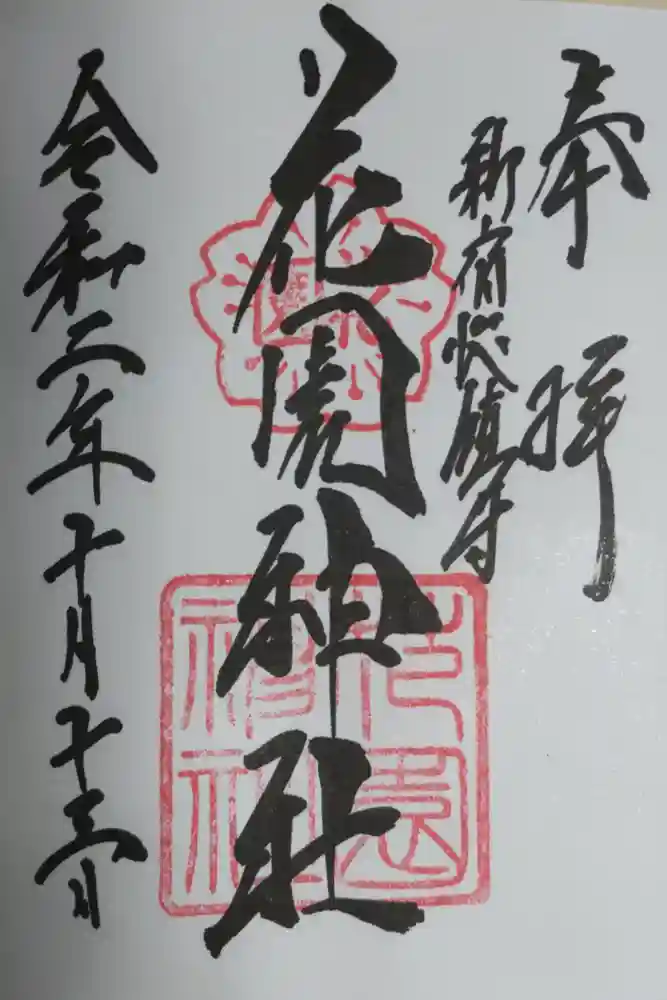 奉拝
新宿総鎮守
花園神社
花園神社
令和二年十月十三日